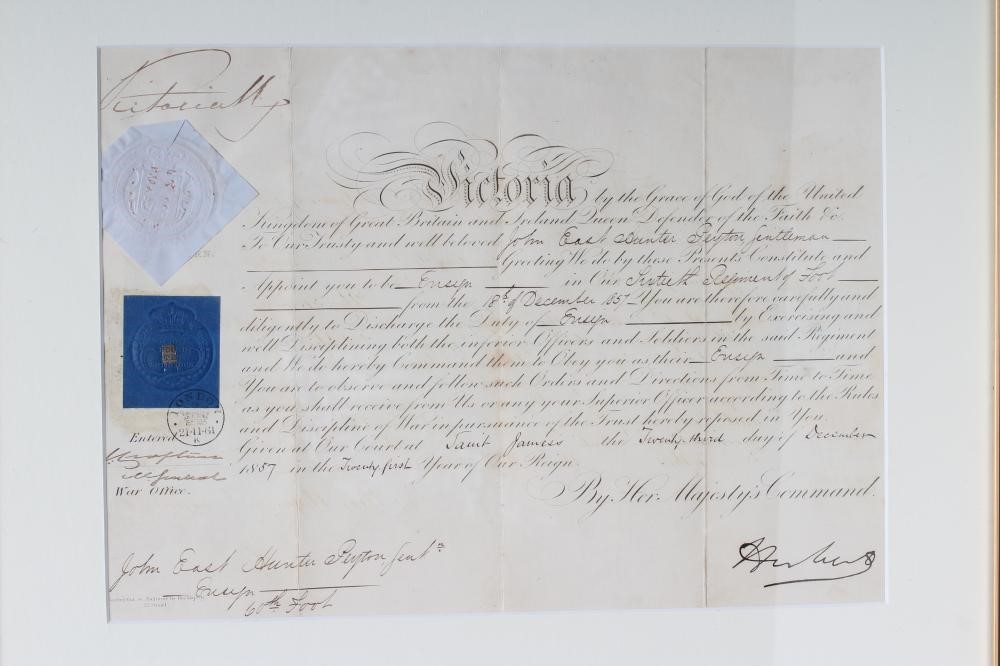 Victoria R
Victoria by the Grace of God of the United
Kingdom of Great Britain and Ireland Queen Defender of the Faith &c.
To Our Trusty and well beloved John East Hunter Peyton Gentleman
Greeting We do by these Presents Constitute and
Appoint you to be Ensign in Our Sixtieth Regiment of Foot
from the 18th of December 1857 You are therefore carefully and
diligently to Discharge the Duty of Ensign by Exercising and
well Disciplining both the inferior Officers and Soldiers in the said Regiment
and We do hereby Command them to Obey you as their Ensign and
You are to observe and follow such Orders and Directions from Time to Time
as you shall receive from Us or any your Superior Officer according to the Rules
and Discipline of War in pursuance of the Trust hereby reposed in You.
Given at Our Court at Saint James's the Twenty third day of December
1857 in the Twenty first Year of Our Reign
By Her Majesty's Command.
LONDON
21-11-61
K
Entered
General
War Office.
John East Hunter Peyton, Gent.n
Ensign
60th Foot